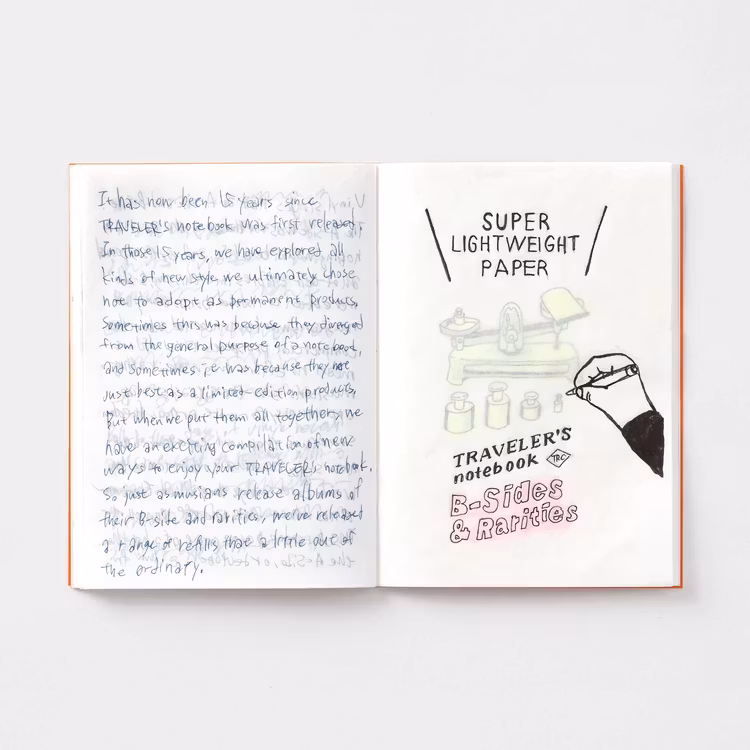 It has now been 15 years since
TRAVELER'S notebook was first released.
In those 15 years, we have explored all
kinds of new style we ultimately chose
not to adopt as permanent products,
Sometimes this was because they diverged
from the general purpose of a notebook,
and sometimes it was because they met
just best as a limited-edition products,
But when we put them all together, we
have an exciting compilation of new
ways to enjoy your TRAVELER's notebook.
So just as musians release albums of
their B-side and rarities, we've released
a range of refills that a little out of
the ordinary.
SUPER
LIGHTWEIGHT
PAPER
TRAVELER'S
notebook TRC
B-Sides
& Rarities